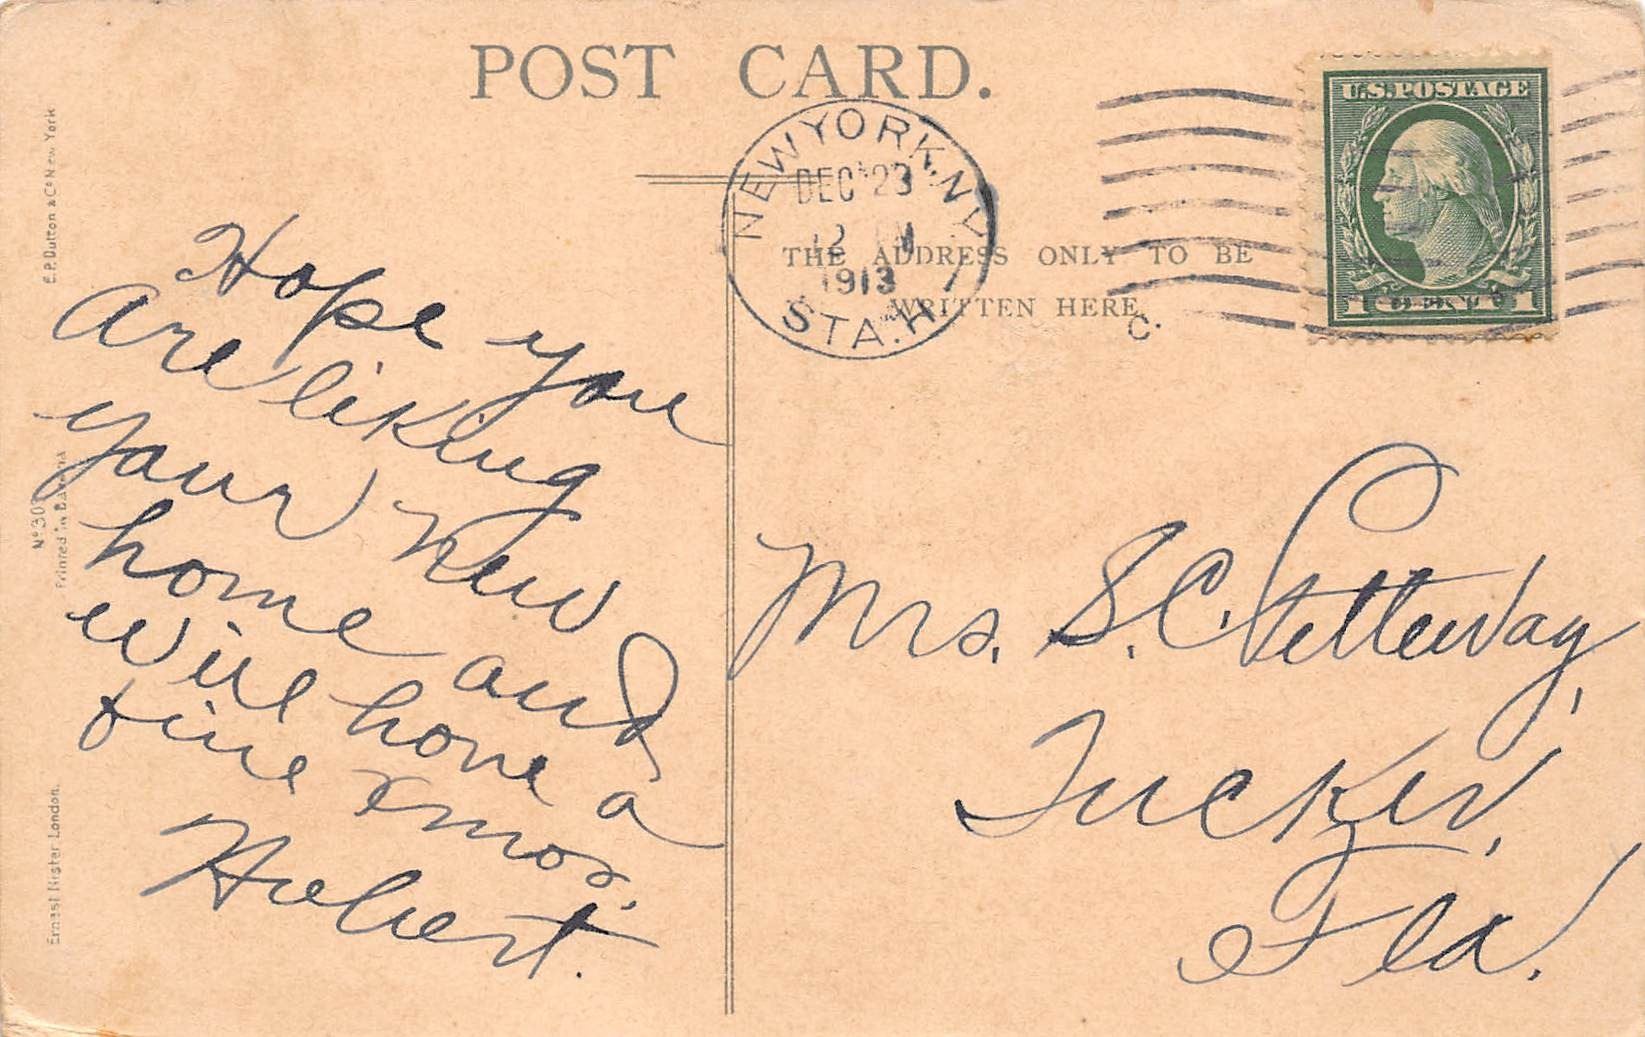 POST CARD.
NEW YORK, N.Y.
DEC 23
12 PM
1913
STA. H
C.
U.S. POSTAGE
1 CENT 1
THE ADDRESS ONLY TO BE
WRITTEN HERE
E.P. Dutton & Co New York
Printed in Bavaria
Ernest Nister London.
Hope you
are liking
your new
home and
will have a
fine Xmas.
Hubert.
Mrs. S. C. Petteway,
Tucker,
Fla.